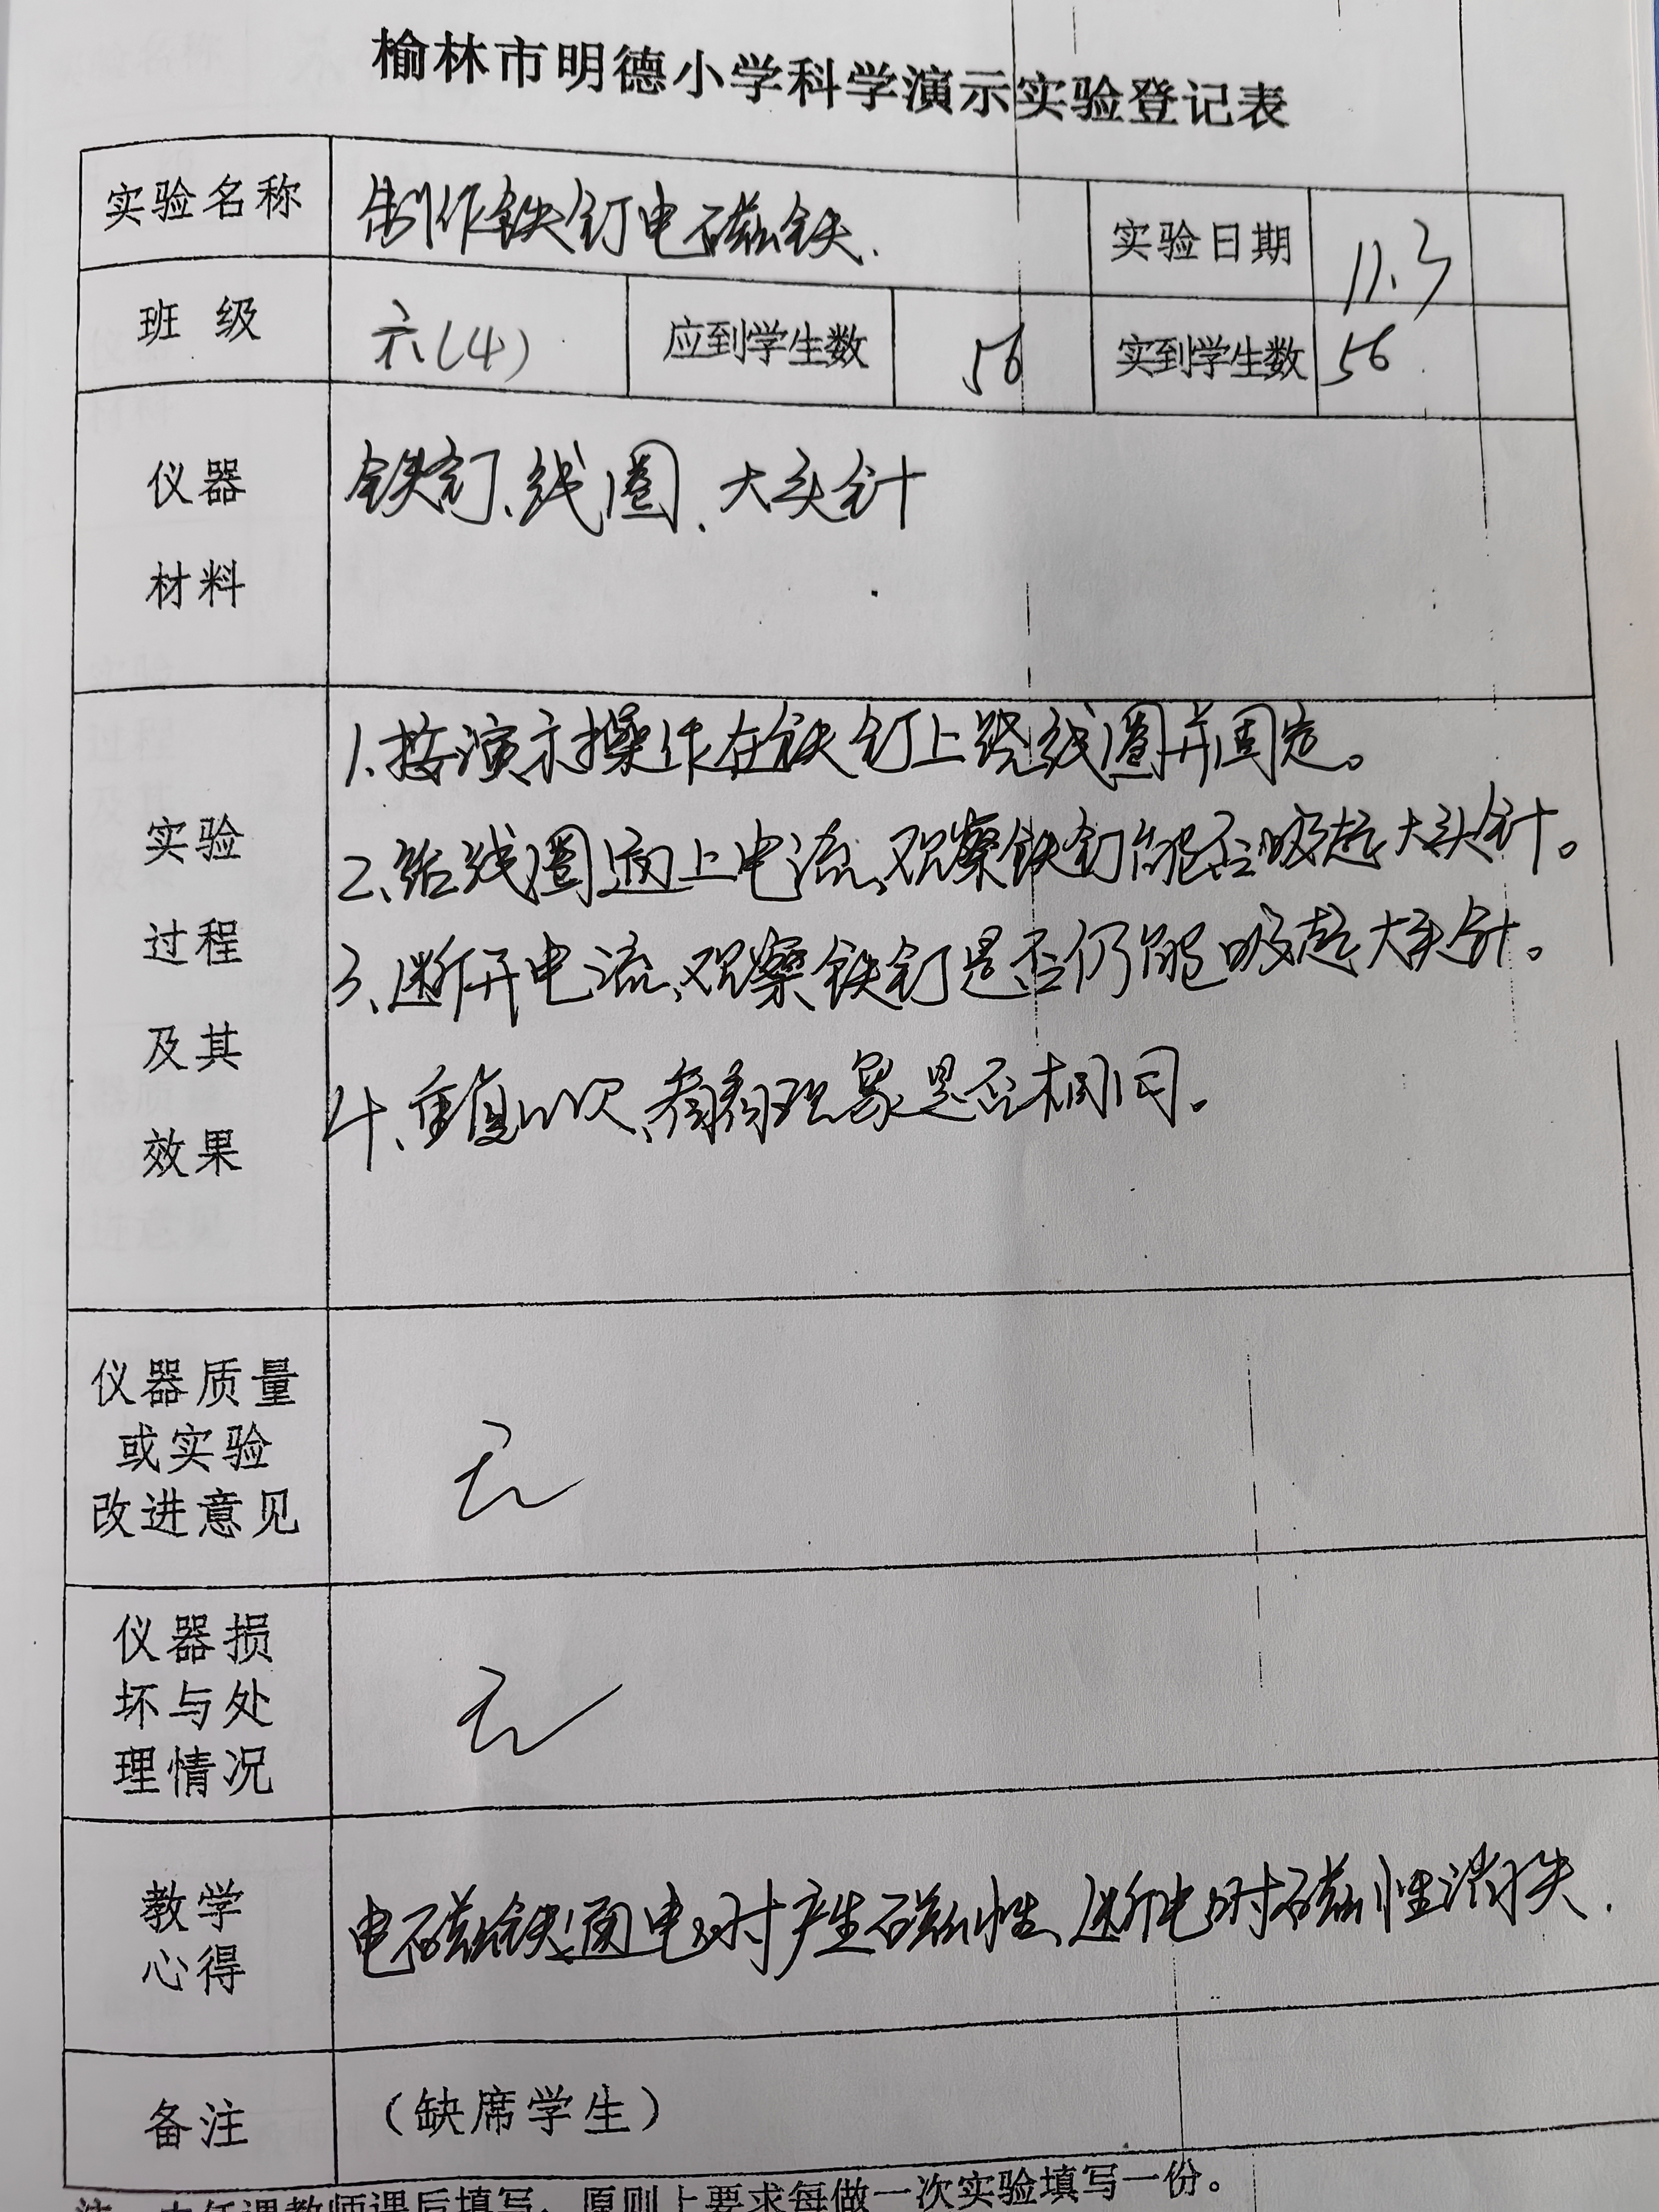 榆林市明德小学科学演示实验登记表
实验名称 制作铁钉电磁铁. 实验日期 11.3
班 级 六(4) 应到学生数 56 实到学生数 56
仪器
材料
铁钉、线圈、大头针
实验
过程
及其
效果
1、按演示操作在铁钉上绕线圈并固定。
2、给线圈通上电流、观察铁钉能否吸起大头针。
3、断开电流、观察铁钉是否仍能吸起大头针。
4、重复几次、看看现象是否相同。
仪器质量
或实验
改进意见
无
仪器损
坏与处
理情况
无
教学
心得
电磁铁通电时产生磁性、断电时磁性消失.
备注 (缺席学生)
注:由任课教师课后填写,原则上要求每做一次实验填写一份。